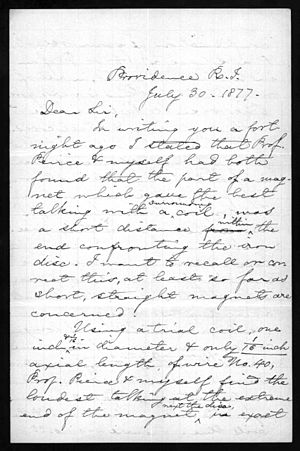 Providence R.I.
July 30. 1877.
Dear Sir,
In writing you a fort
night ago I stated that Prof.
Peirce & myself had both
found that the part of a mag-
net which gave the best
talking with a surrounding coil, was
a short distance within
the
end confronting the iron
disc. I want to recall or cor
rect this, at least so far as
short, straight magnets are
concerned.
Using a trial coil, one
inch in diameter & only 1/10 inch
axial length, of wire No. 40,
Prof. Peirce & myself find the
loudest talking at the extreme
end of the magnet next the disc,
exact